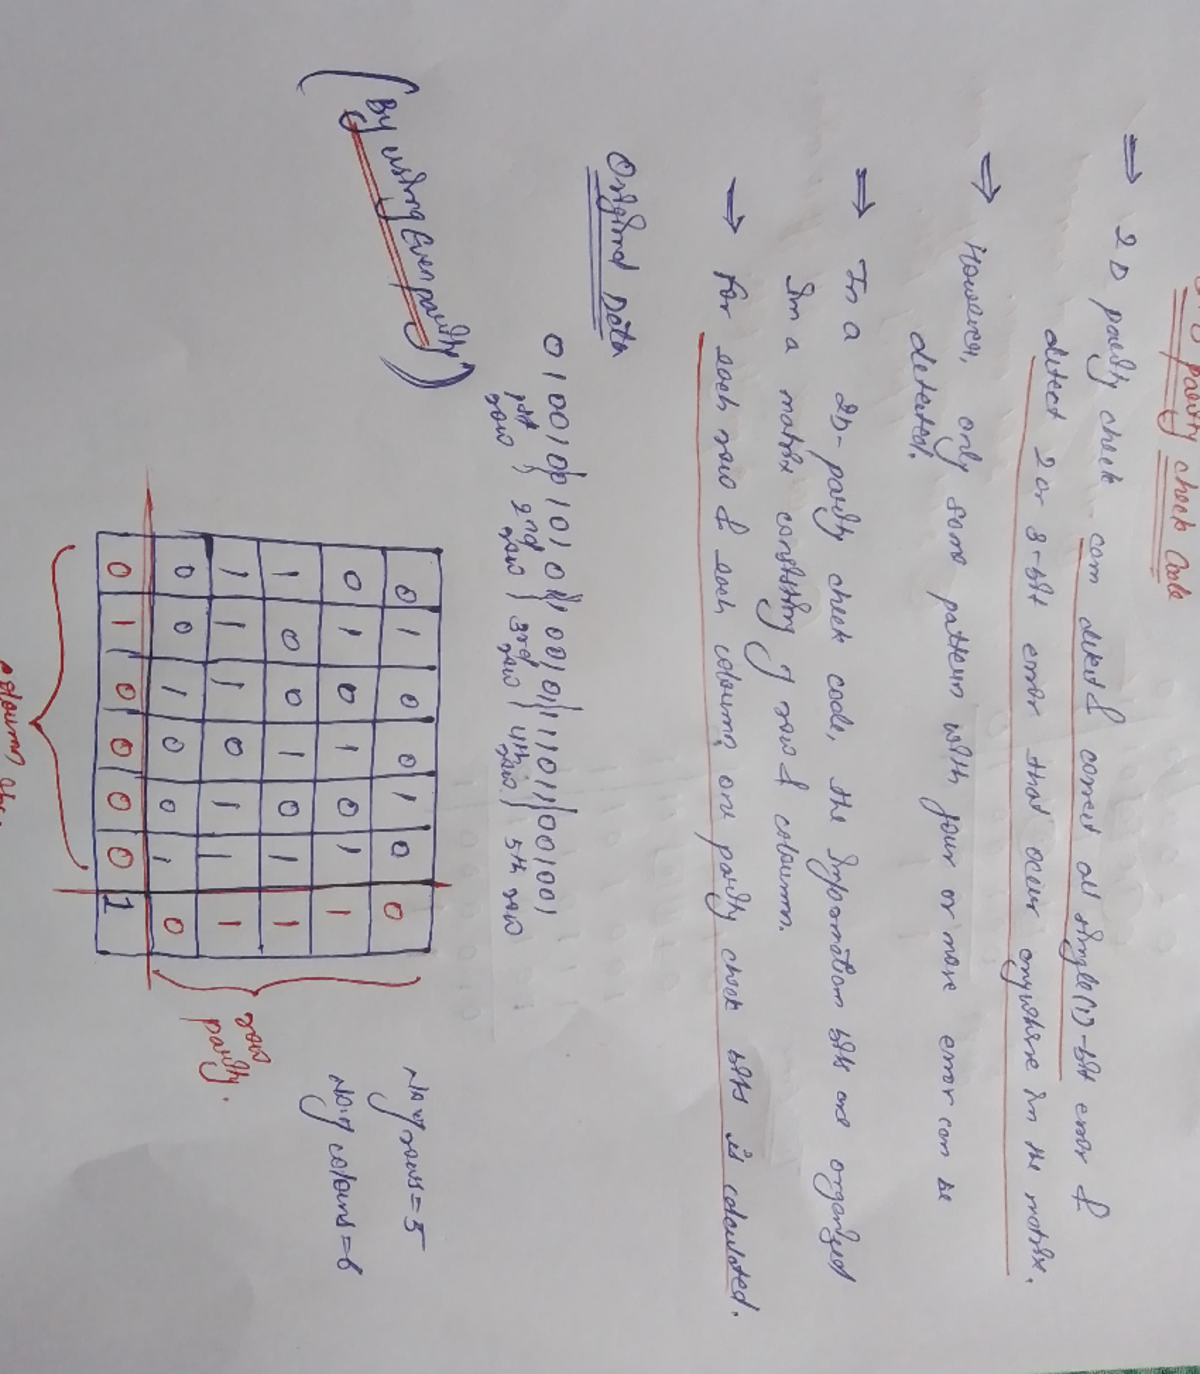 parity check Code
⇒ 2D parity check can detect & correct all single(1)-bit error &
detect 2 or 3-bit error that occur anywhere in the matrix.
⇒ However, only some pattern with four or more error can be
detected.
⇒ In a 2D-parity check code, the information bits are organized
in a matrix consisting of row & coloumn.
→ For each row & each coloumn, one parity check bits is calculated.
Original Data
010010/010101/100101/111011/001001
1st row / 2nd row / 3rd row / 4th row / 5th row
(By using Even parity)
0 1 0 0 1 0 0
0 1 0 1 0 1 1
1 0 0 1 0 1 1
1 1 1 0 1 1 1
0 0 1 0 0 1 0
0 1 0 0 0 0 1
row
parity.
No. of rows = 5
No. of coloums = 6